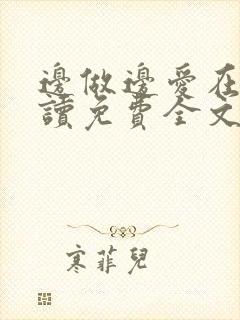 邊做邊愛在
讀免費全文
寒菲兒